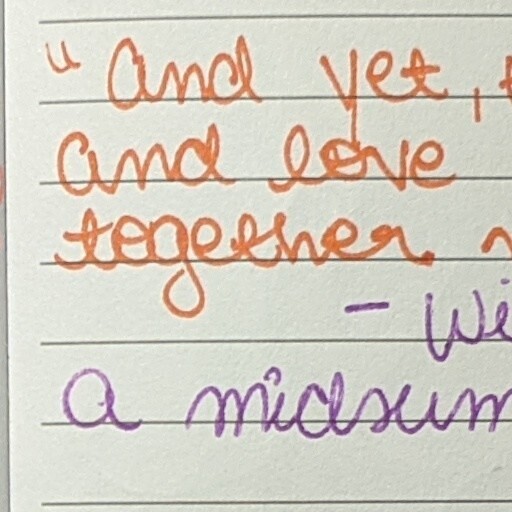 "And yet,
and love
together
- Wi
A midsum